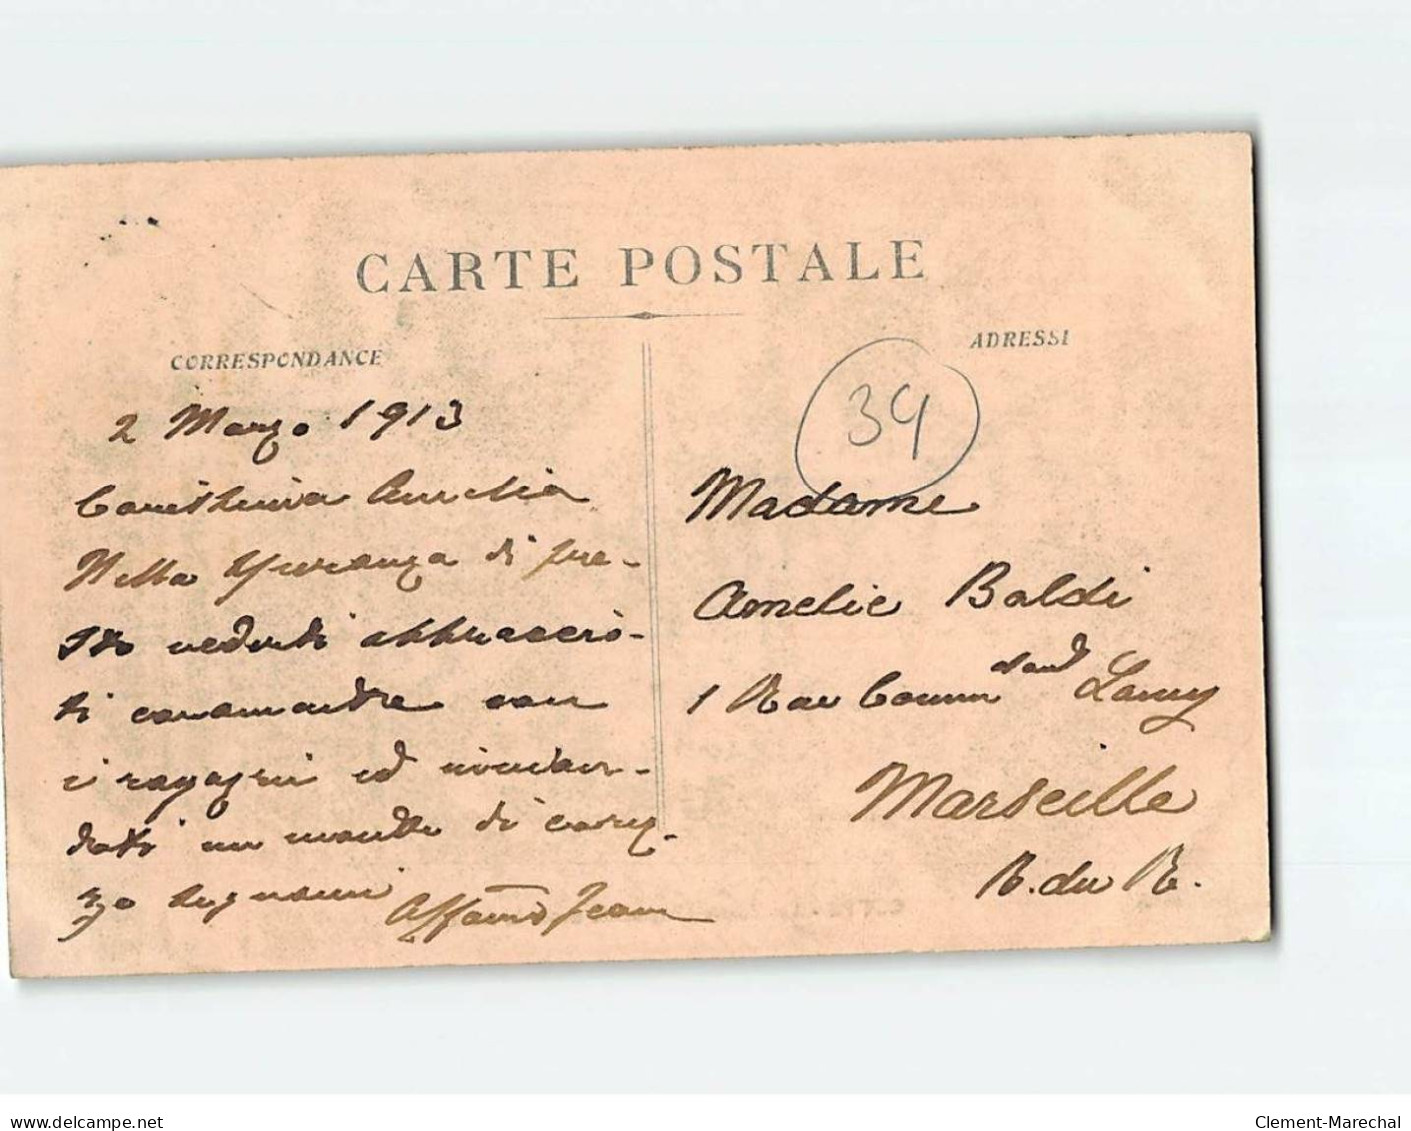 CARTE POSTALE
CORRESPONDANCE
ADRESSE
34
2 Marzo 1913
Carissima Aurelia
Nella speranza di pre-
sto vederti abbraccerò-
ti caramente con
i ragazzi ed
un mondo di
Affmo Jean
Madame
Amelie Baldi
1 Rue Commdant Lamy
Marseille
B. du R.
delcampe.net
Clement-Marechal